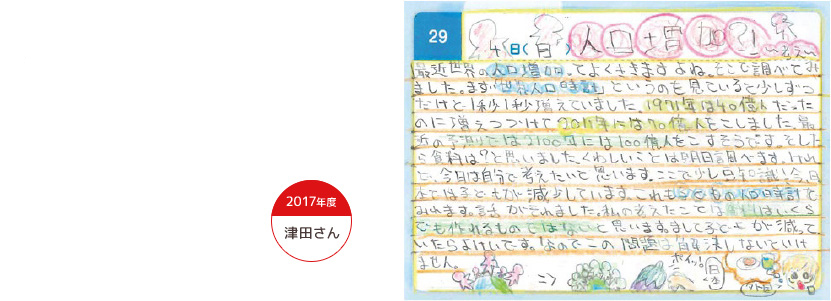 2017年度
津田さん
29
4(日)
人口増加?!
〜考え〜
最近世界の人口増加ってよくききますよね。そこで調べてみ
ました。まず「世界人口時計」というのを見ていると少しずつ
だけど1秒1秒増えていました。1971年は40億人だった
のに増えつづけて2011年には70億人をこしました。最
近の予測では2100年には100億人をこすそうです。そした
ら食料は?と思いました。くわしいことは明日調べます。
今日は自分で考えたいと思います。ここで少し豆知識!今、日
本では子どもが減少しています。これも子どもの人口時計で
みれます。話がそれました。私の考えたことは食料はいくら
でも作れるものではないと思います。まして子どもが減って
いたらよけいです。なのでこの問題は解決しないといけ
ません。
ポイッ!
日本